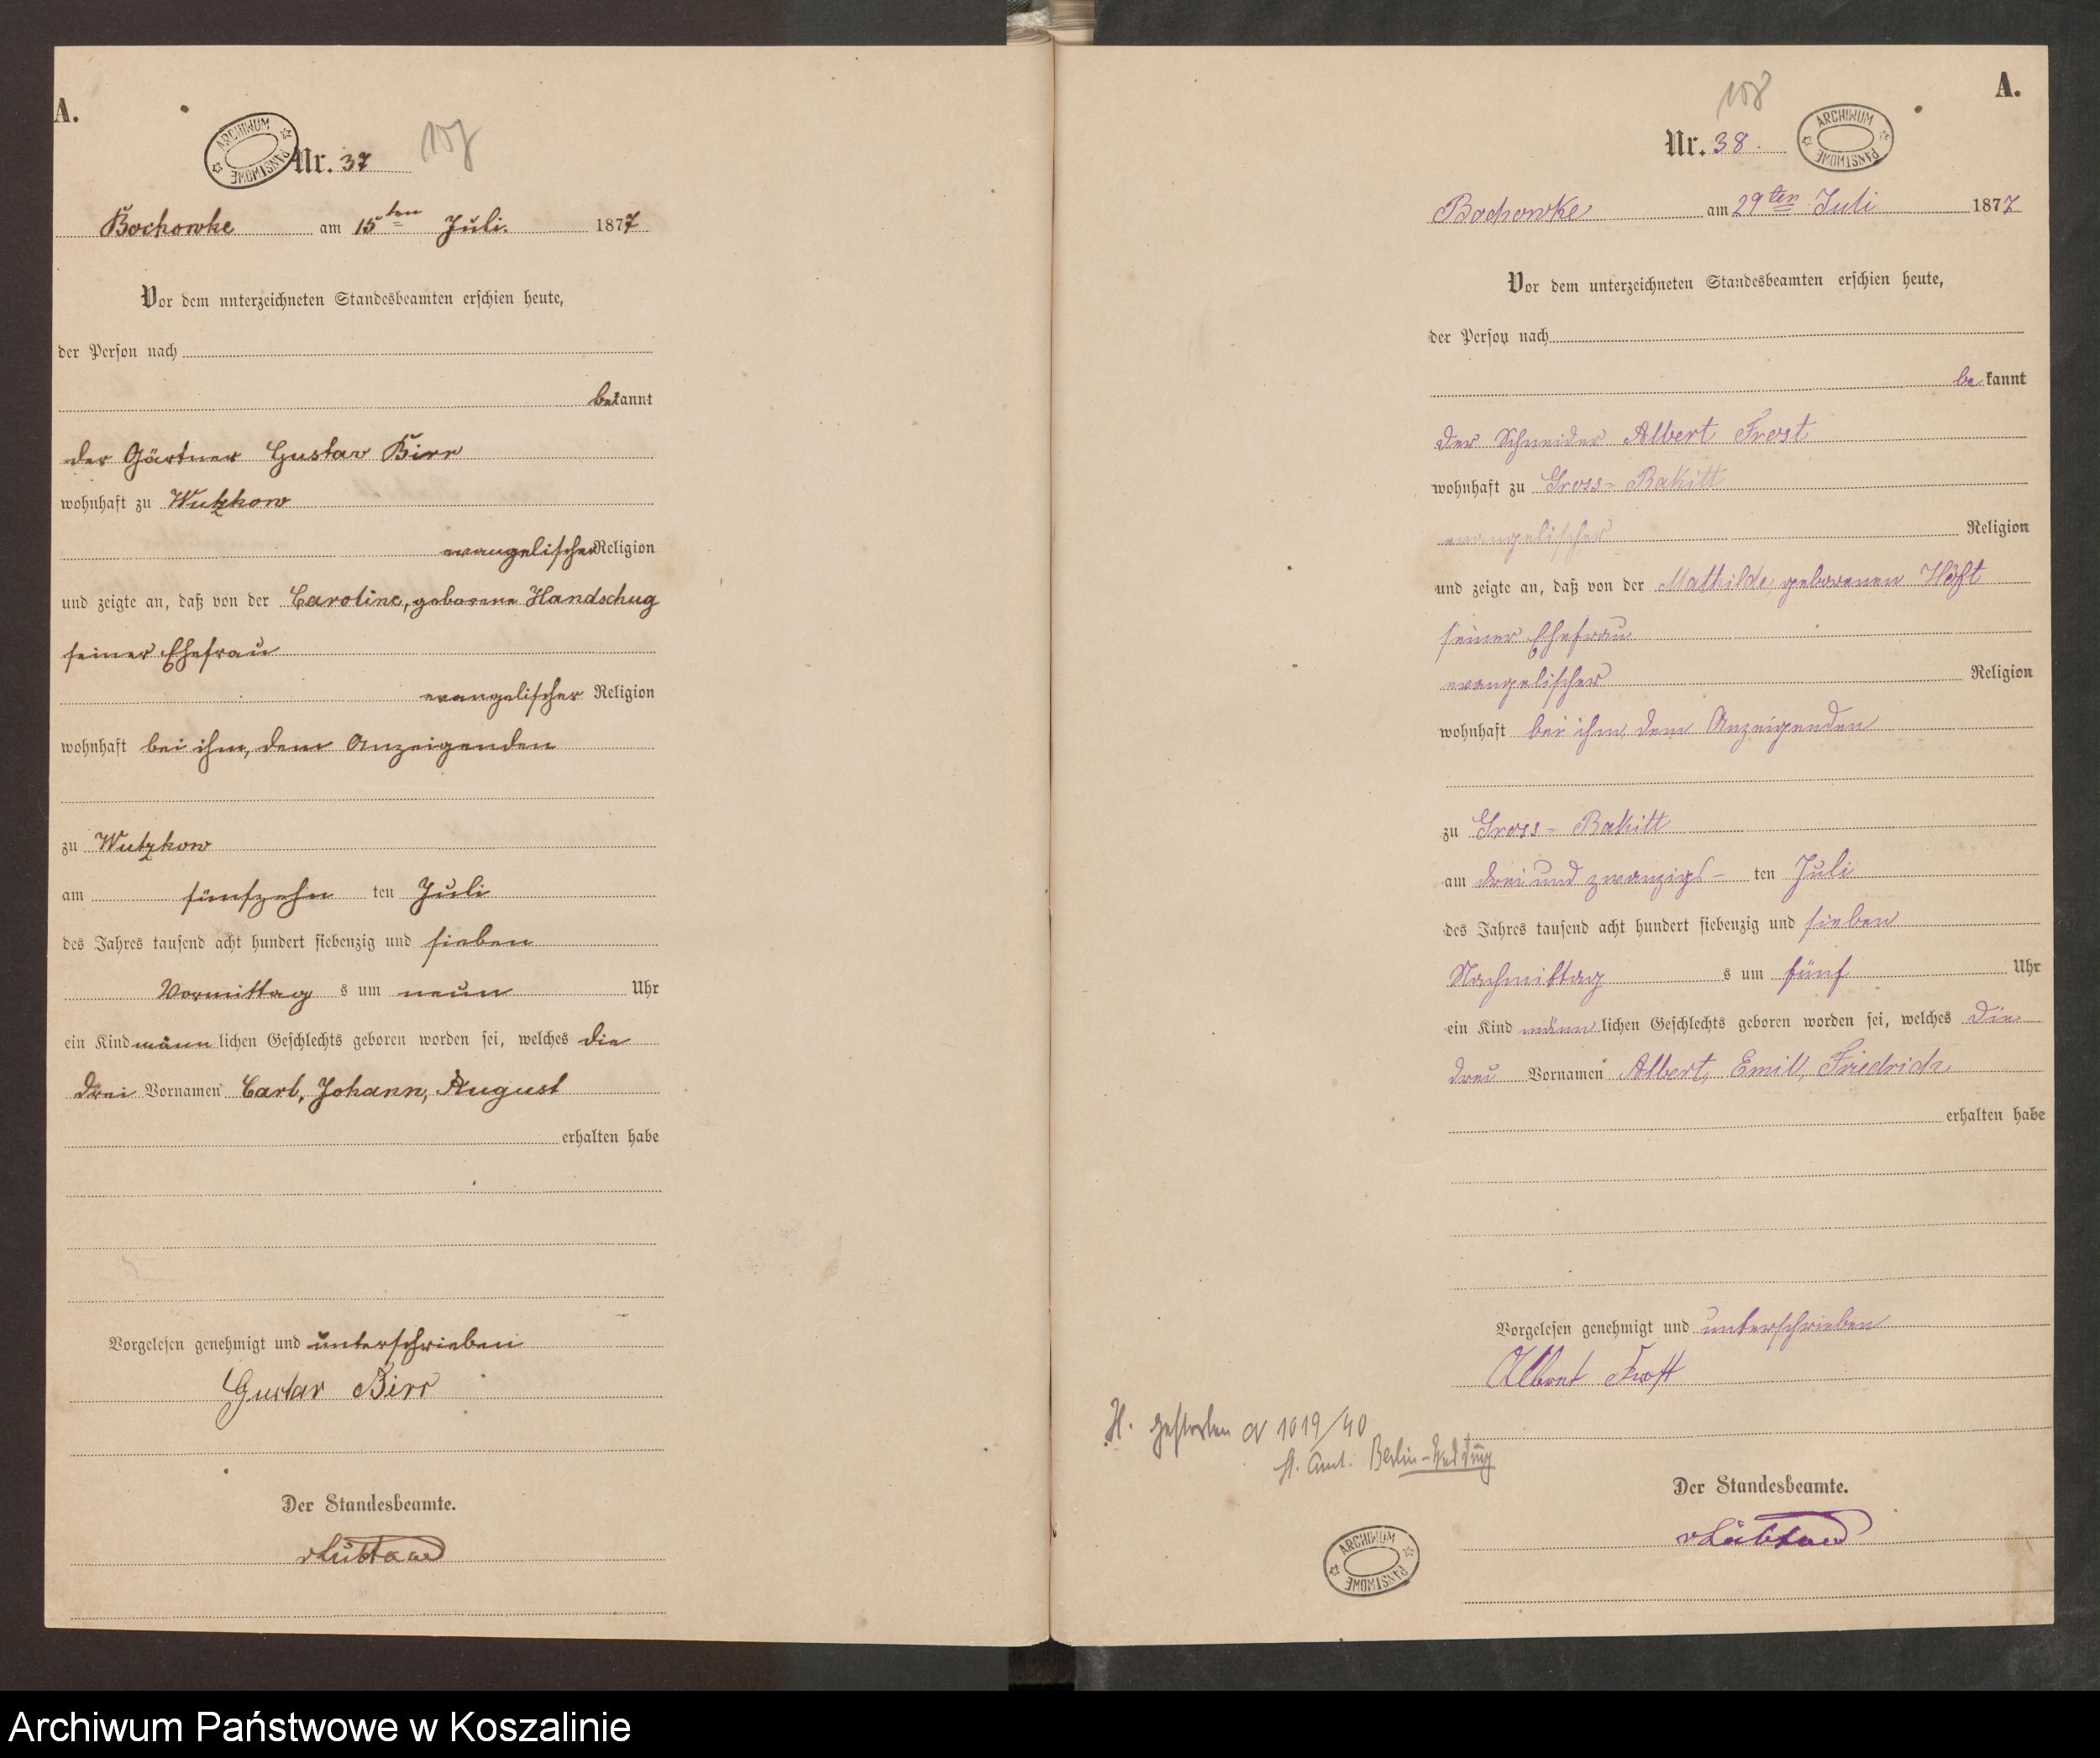 A.
ARCHIWUM PAŃSTWOWE
Nr. 37
107
Bochowke am 15ten Juli. 1877
Vor dem unterzeichneten Standesbeamten erschien heute,
der Person nach
bekannt
der Gärtner Gustav Birr
wohnhaft zu Wutzkow
evangelischer Religion
und zeigte an, daß von der Caroline, geborene Handschug
seiner Ehefrau
evangelischer Religion
wohnhaft bei ihm, dem Anzeigenden
zu Wutzkow
am fünfzehn ten Juli
des Jahres tausend acht hundert siebenzig und sieben
Vormittag s um neun Uhr
ein Kind männlichen Geschlechts geboren worden sei, welches die
drei Vornamen Carl, Johann, August
erhalten habe
Vorgelesen genehmigt und unterschrieben
Gustav Birr
Der Standesbeamte.
vLübtow
A.
108
ARCHIWUM PAŃSTWOWE
Nr. 38.
Bochowke am 29ten Juli 1877
Vor dem unterzeichneten Standesbeamten erschien heute,
der Person nach
bekannt
der Schneider Albert Frost
wohnhaft zu Gross-Rakitt
evangelischer Religion
und zeigte an, daß von der Mathilde, geborenen Höft
seiner Ehefrau
evangelischer Religion
wohnhaft bei ihm, dem Anzeigenden
zu Gross-Rakitt
am drei und zwanzigs- ten Juli
des Jahres tausend acht hundert siebenzig und sieben
Nachmittag s um fünf Uhr
ein Kind männlichen Geschlechts geboren worden sei, welches die
drei Vornamen Albert, Emil, Friedrich
erhalten habe
Vorgelesen genehmigt und unterschrieben
Albert Frost
H. gestorben 1019/40
St. Amt. Berlin-Wedding
Der Standesbeamte.
vLübtow
ARCHIWUM PAŃSTWOWE
Archiwum Państwowe w Koszalinie